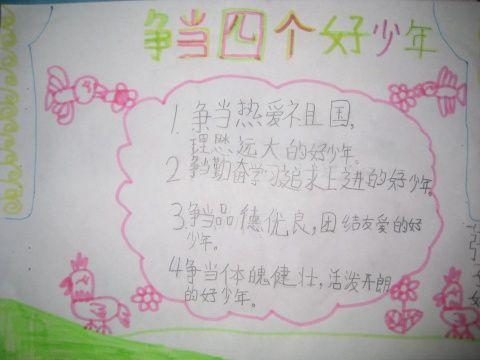 争当四个好少年
1.争当热爱祖国,
理想远大的好少年。
2争当勤奋学习追求上进的好少年。
3.争当品德优良,团结友爱的好
少年。
4争当体魄健壮,活泼开朗
的好少年。